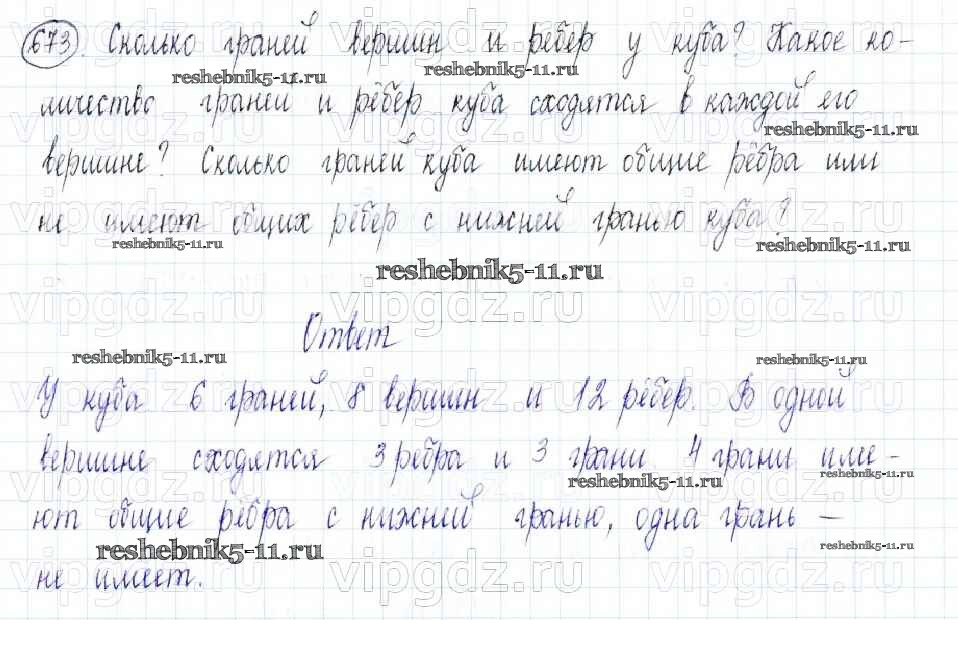 673. Сколько граней вершин и рёбер у куба? Какое ко-
личество граней и рёбер куба сходятся в каждой его
вершине? Сколько граней куба имеют общие рёбра или
не имеют общих рёбер с нижней гранью куба?
Ответ
У куба 6 граней, 8 вершин и 12 рёбер. В одной
вершине сходятся 3 ребра и 3 грани 4 грани име-
ют общие рёбра с нижней гранью, одна грань –
не имеет.
reshebnik5-11.ru
vipgdz.ru